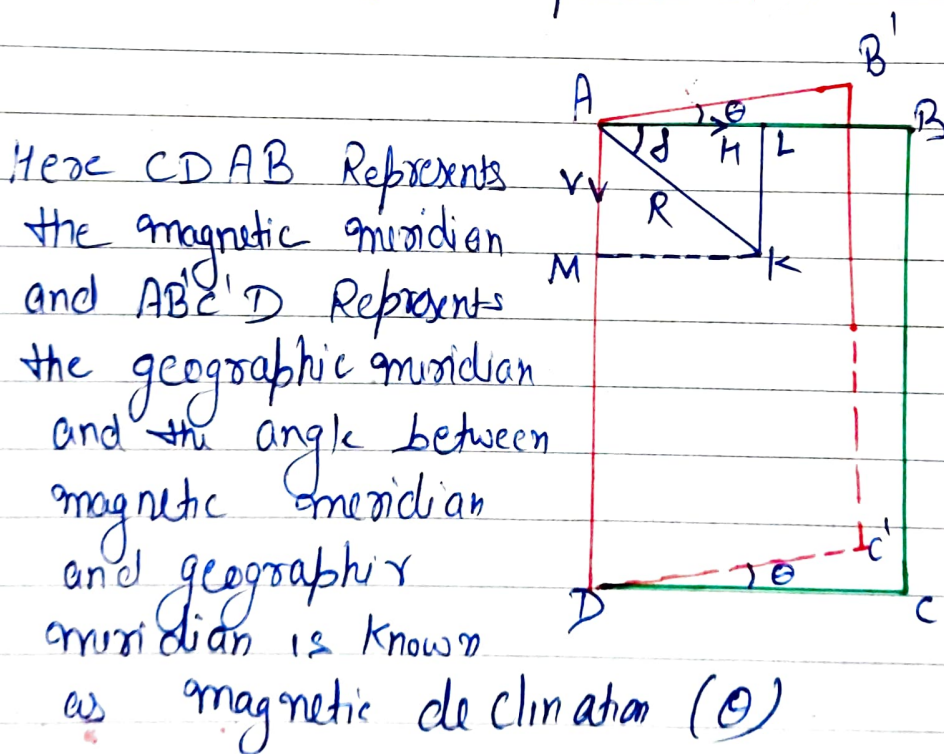 B'
A θ B
Here CDAB Represents
V δ H L
the magnetic meridian
R
M K
and AB'C'D Represents
the geographic meridian
and the angle between
magnetic meridian
C'
and geographic
θ
D C
meridian is known
as magnetic declination (θ)